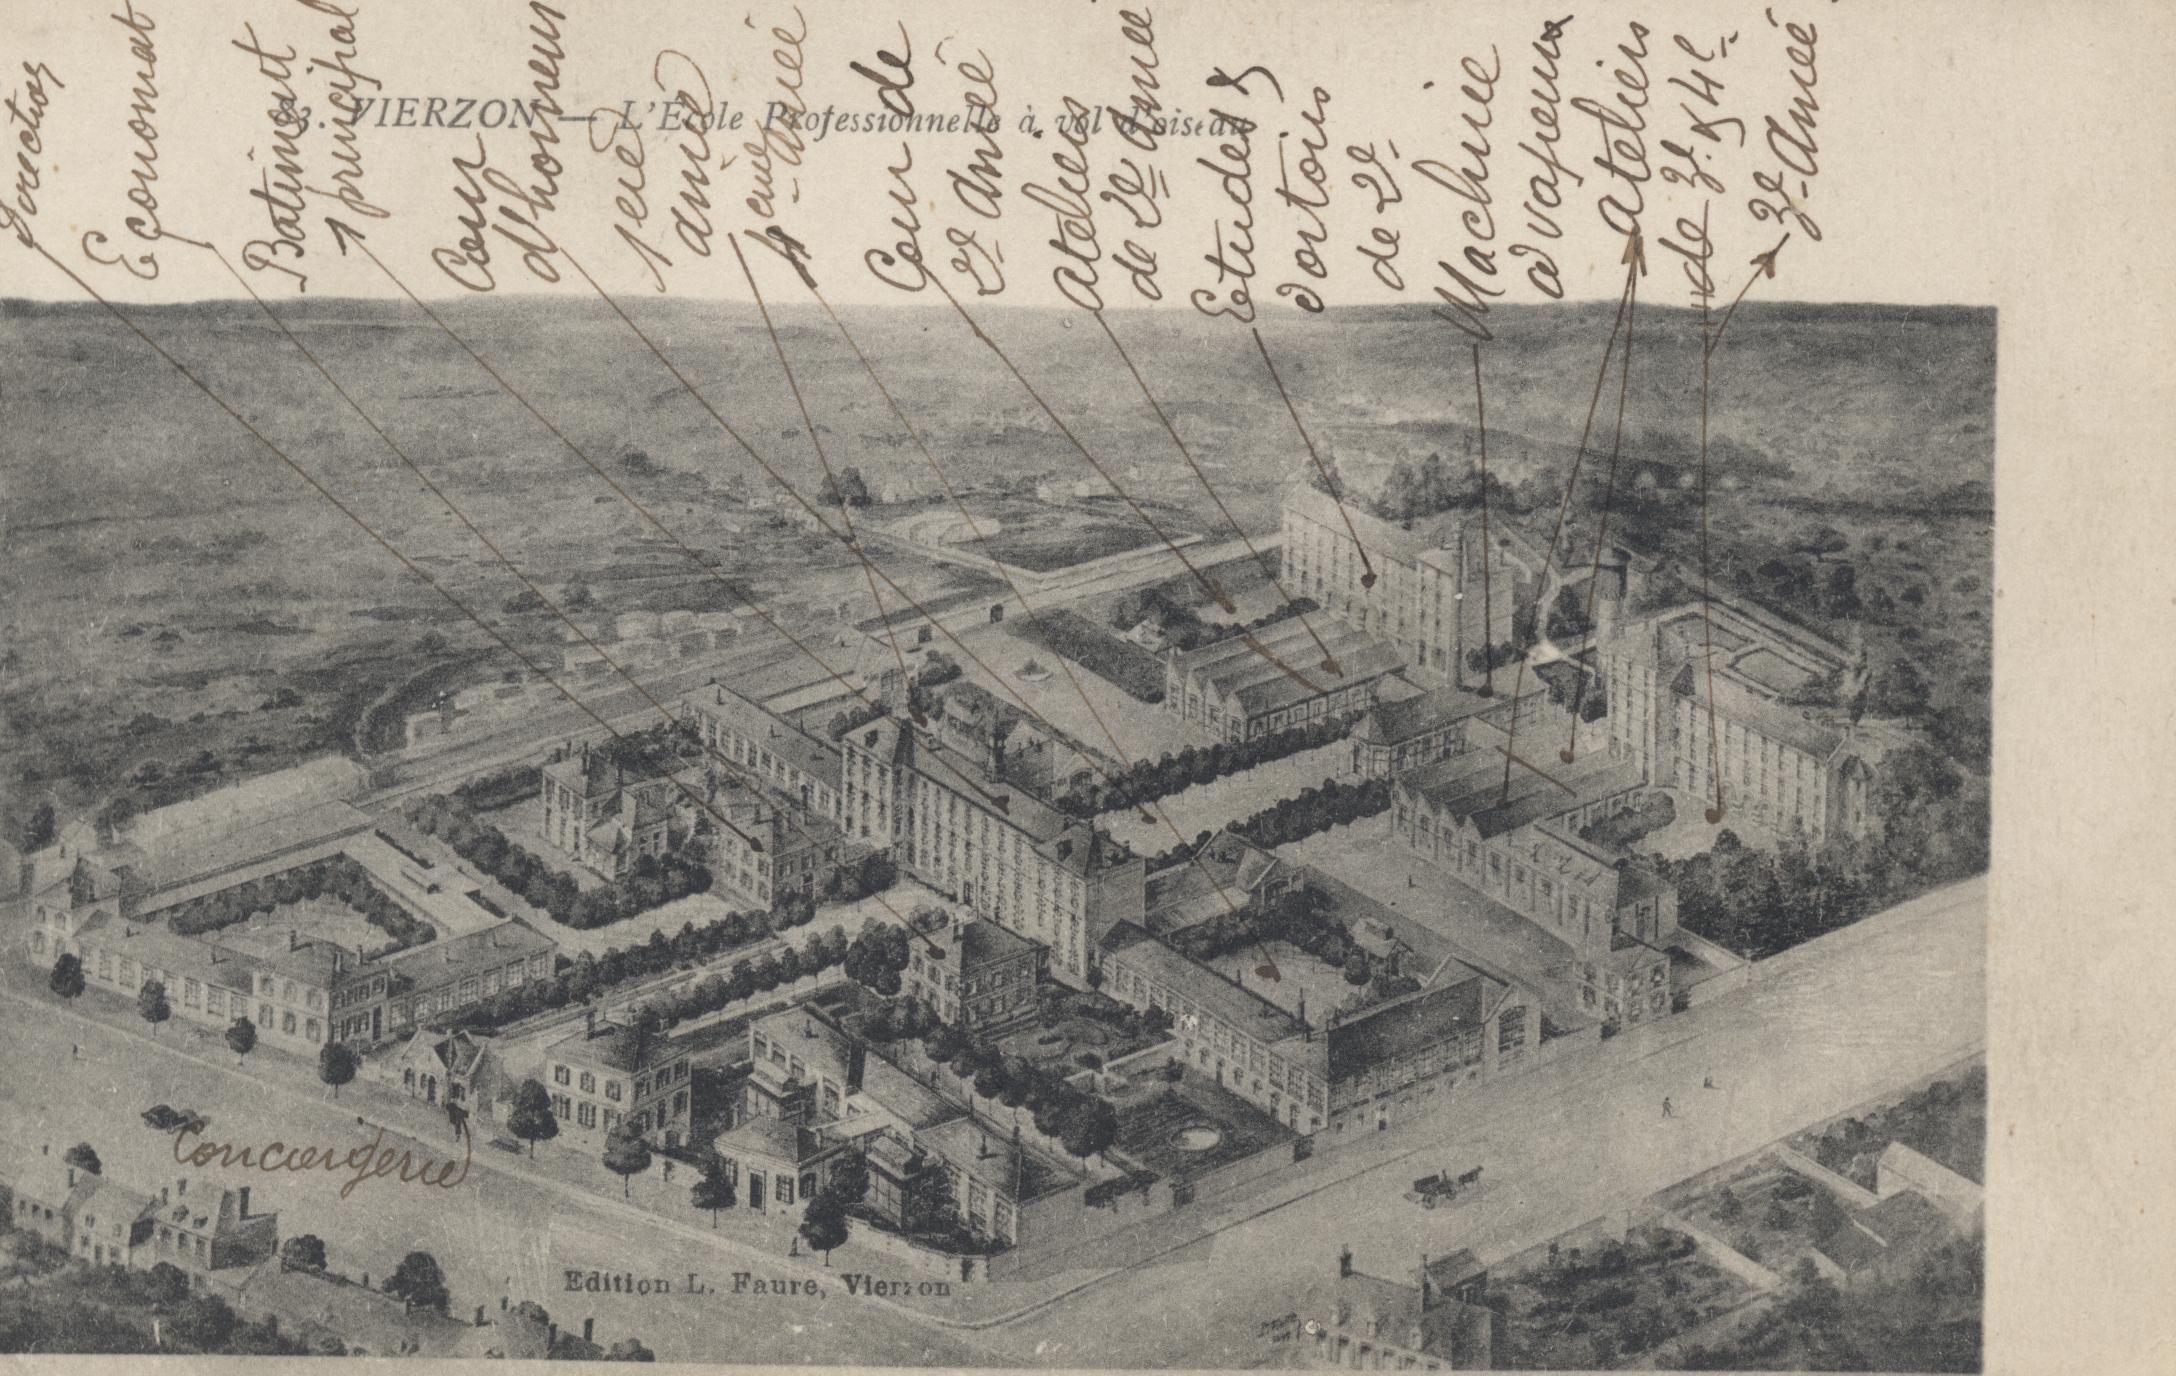 Direction
Economat
Batiment
principal
Cour
d'honneur
1ère
année
4eme
année
Cour de
2e Année
Ateliers
de 2e Année
Etudes &
dortoirs
de 2e
Machine
à vapeur
Ateliers
de 3e & 4e
3e Année
3. VIERZON — L'École Professionnelle à vol d'oiseau
Conciergerie
Edition L. Faure, Vierzon